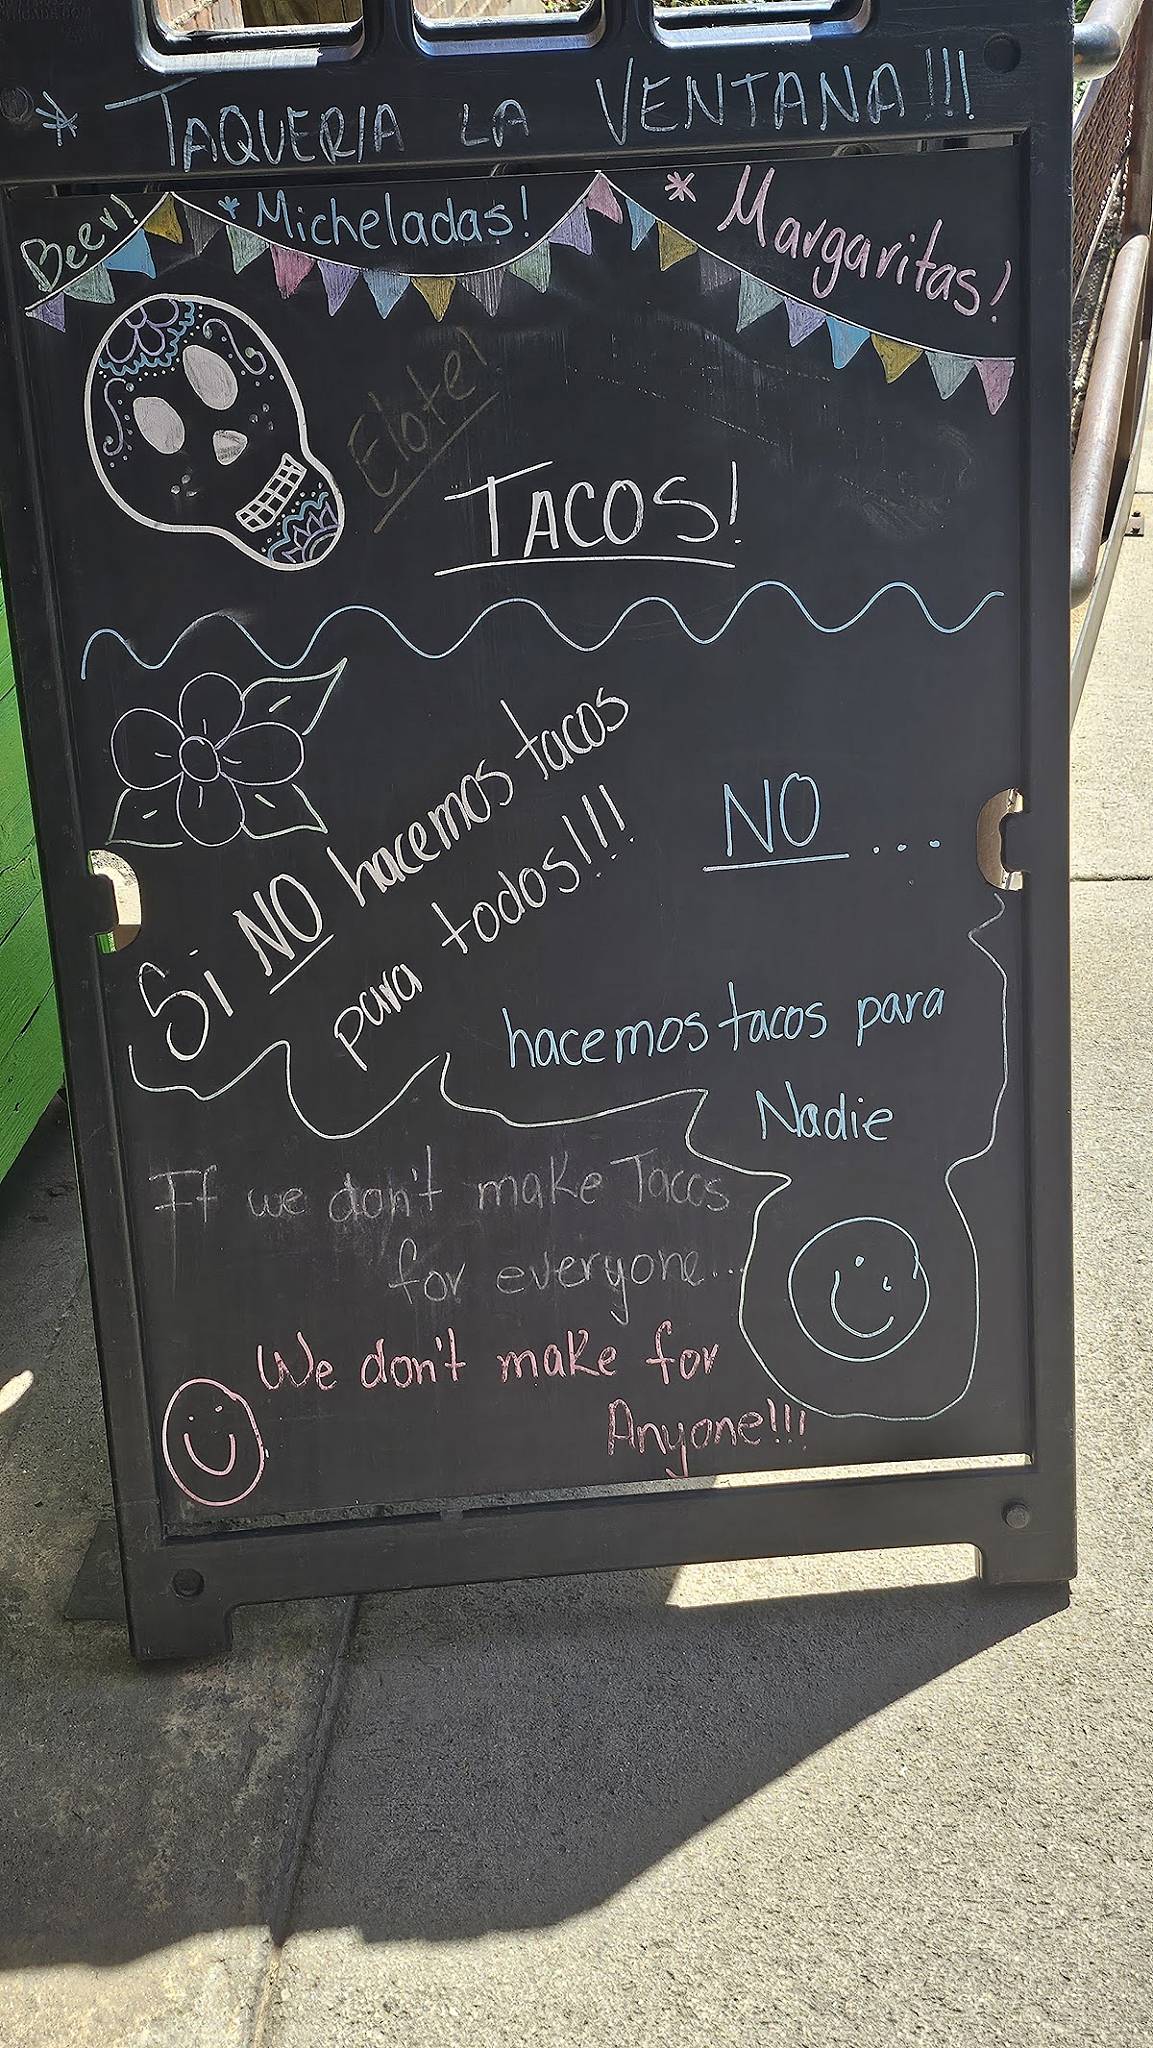 * TAQUERIA LA VENTANA!!!
Beer!
* Micheladas!
* Margaritas!
Elote!
TACOS!
Si NO hacemos tacos
para todos!!!
NO...
hacemos tacos para
Nadie
If we don't make Tacos
for everyone...
We don't make for
Anyone!!!